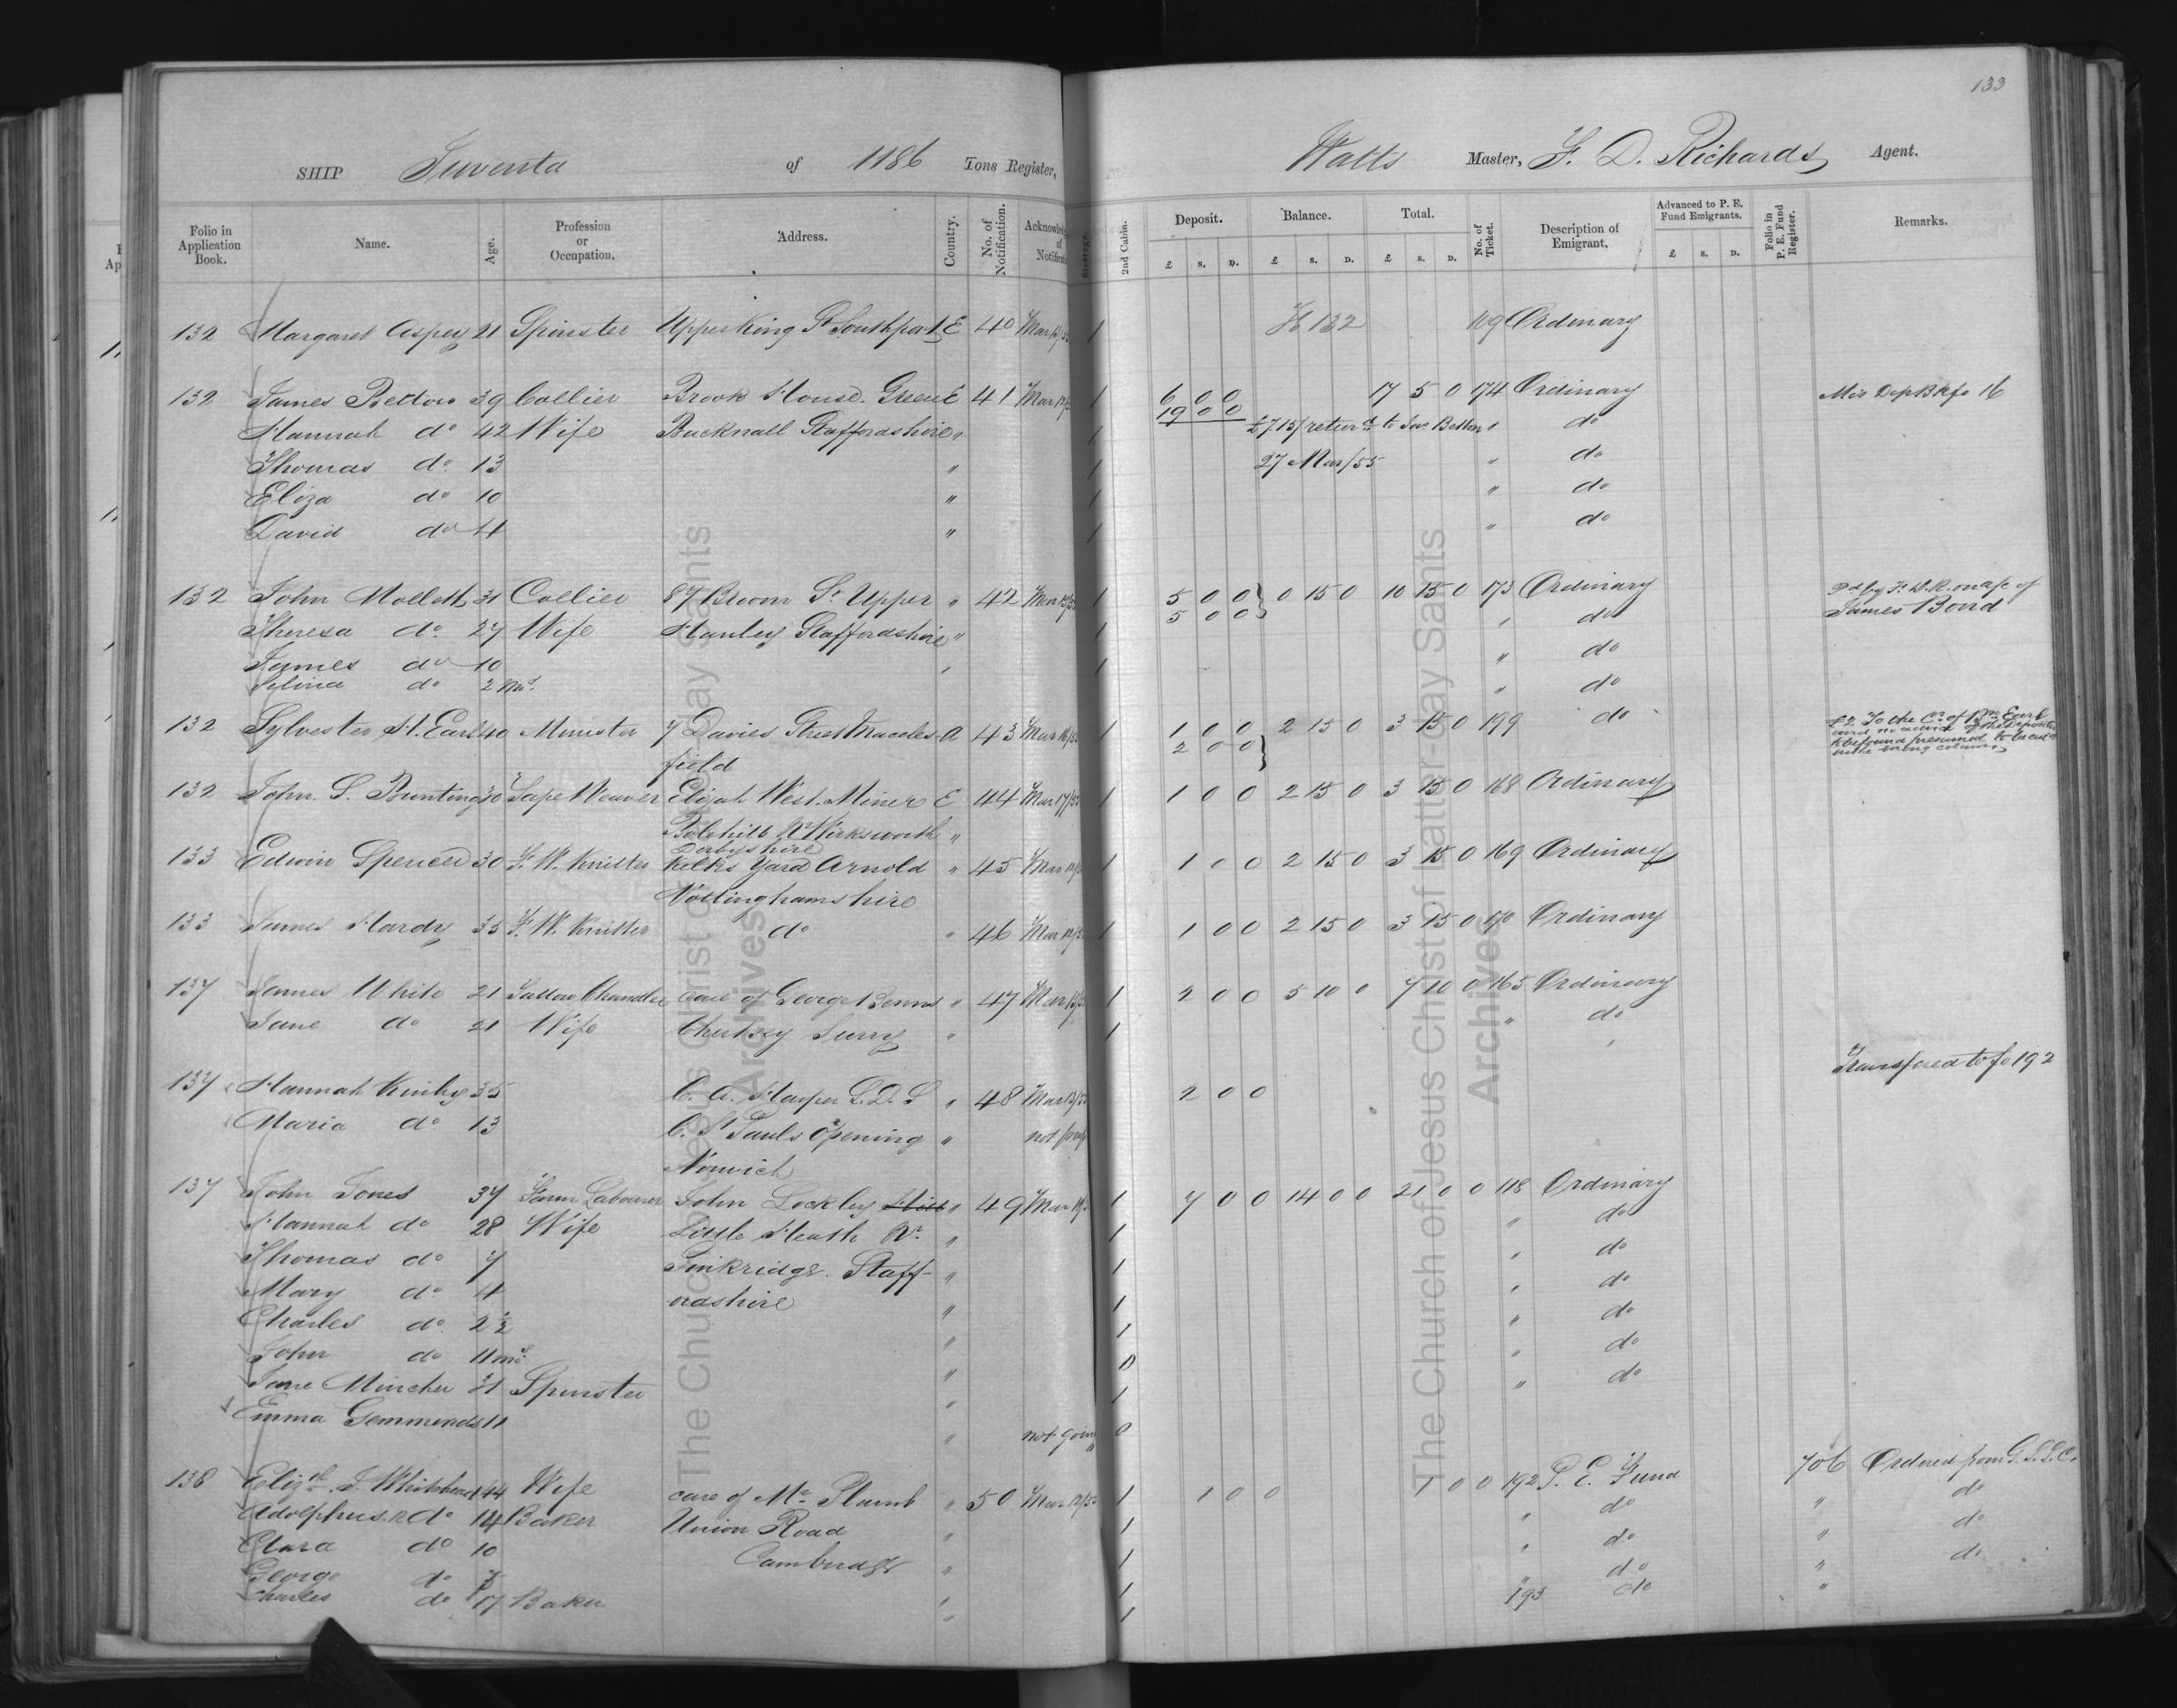 133
SHIP Juventa of 1186 Tons Register, Watts Master, F. D. Richards, Agent.
Folio in Application Book. Name. Age. Profession or Occupation. Address. Country. No. of Notification. 2nd Cabin. Deposit. Balance. Total. No. of Ticket. Description of Emigrant. Advanced to P. E. Fund Emigrants. Folio in P. E. Fund Register. Remarks.
£ S. D. £ S. D. £ S. D. £ S. D.
132 Margaret Aspey 21 Spinster Upper King St Southport E 40 1 Ordinary
132 James Betton 39 Collier Brook House. Green E 41 1 6 0 0 17 5 0 174 Ordinary
19 0 0
Hannah do 42 Wife Bucknall Staffordshire " 1 £7.15/ return'd to Jas Betton " do
Thomas do 13 " 1 27 Mar/55 " do
Eliza do 10 " 1 " do
David do 4 " 1 " do
132 John Mollett 31 Collier 87 Broom St Upper " 42 1 5 0 0 0 15 0 10 15 0 173 Ordinary Pd by F. D. R. on a/c of
5 0 0
Theresa do 27 Wife Hanley Staffordshire " 1 " do James Bond
James do 10 1 " do
Selina do 2 mos. " do
132 Sylvester H. Earl 40 Minister 7 Davies Street Maccles- A 43 1 1 0 0 2 15 0 3 15 0 199 do
2 0 0
field
132 John. S. Bunting 30 Tape Weaver Elijah West. Miner E 44 Mar 17/55 1 1 0 0 2 15 0 3 15 0 168 Ordinary
Bolehill Nr Wirksworth "
Derbyshire
133 Edwin Spencer 30 F. W. Knitter Kelks Yard Arnold " 45 1 1 0 0 2 15 0 3 15 0 169 Ordinary
Nottinghamshire
133 James Hardy 35 F. W. Knitter do " 46 1 1 0 0 2 15 0 3 15 0 170 Ordinary
137 James White 21 Tallow Chandler care of George " 47 1 2 0 0 5 10 0 7 10 0 165 Ordinary
Jane do 21 Wife Chertsey Surry " 1 " do
Transfered to fo 192
137 Hannah Kirby 35 C. A. Harper L. D. S " 48 2 0 0
Maria do 13 C. St Pauls Opening "
Norwich
137 John Jones 37 Farm Labourer John Lockley " 49 1 7 0 0 14 0 0 21 0 0 118 Ordinary
Hannah do 28 Wife Little Heath Nr. " 1 " do
Thomas do 7 Pinkridge. Staff- " 1 " do
Mary do 4 ordshire " 1 " do
Charles do 2½ " 1 " do
John do 11 mos. " 0 " do
Jane Mincher 31 Spinster " 1 " do
Emma Gemmonds 11 " not going 0
138 Elizth. J. Whitehead 44 Wife care of Mr. Plumb " 50 1 1 0 0 1 0 0 192 P. E. Fund 706 Ordered from G. S. L. C.
Adolphus. R do 14 Baker Union Road " 1 " do " do
Clara do 10 Cambridge " 1 " do " do
George do " 1 " do " do
Charles do 17 Baker " 1 193 do "
The Church of Jesus Christ of Latter-day Saints
Archives
The Church of Jesus Christ of Latter-day Saints
Archives